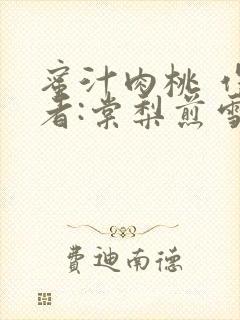 蜜汁肉桃
者:棠梨煎雪
费迪南德